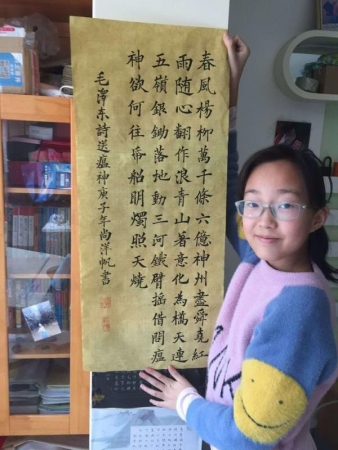 春風楊柳萬千條六億神州盡舜堯紅
雨随心翻作浪青山著意化為橋天連
五嶺銀鋤落地動三河鐵臂摇借問瘟
神欲何往帋船明燭照天燒
毛澤东詩送瘟神庚子年尚洋帆書